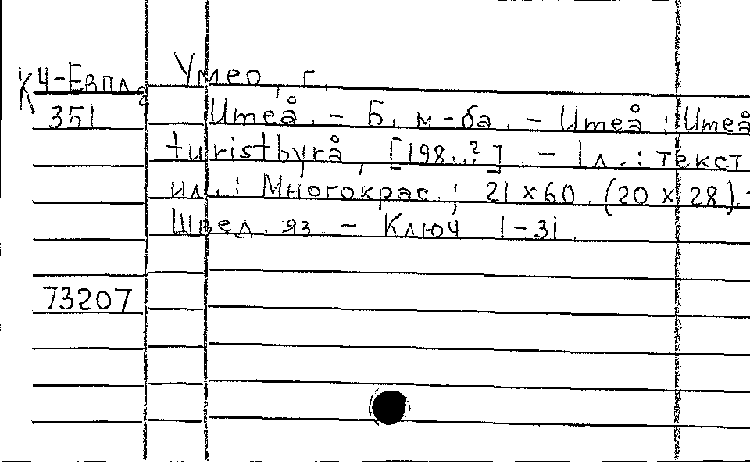 К4-Евпл. Умео, г.
351 Umeå. - Б. м-ба. - Umeå : Umeå
turistbyrå, [198.. ?]. - 1 л. : текст
ил. : Многокрас. ; 21 x 60 (20 x 28). -
Швед. яз. - Ключ 1-31.
73207